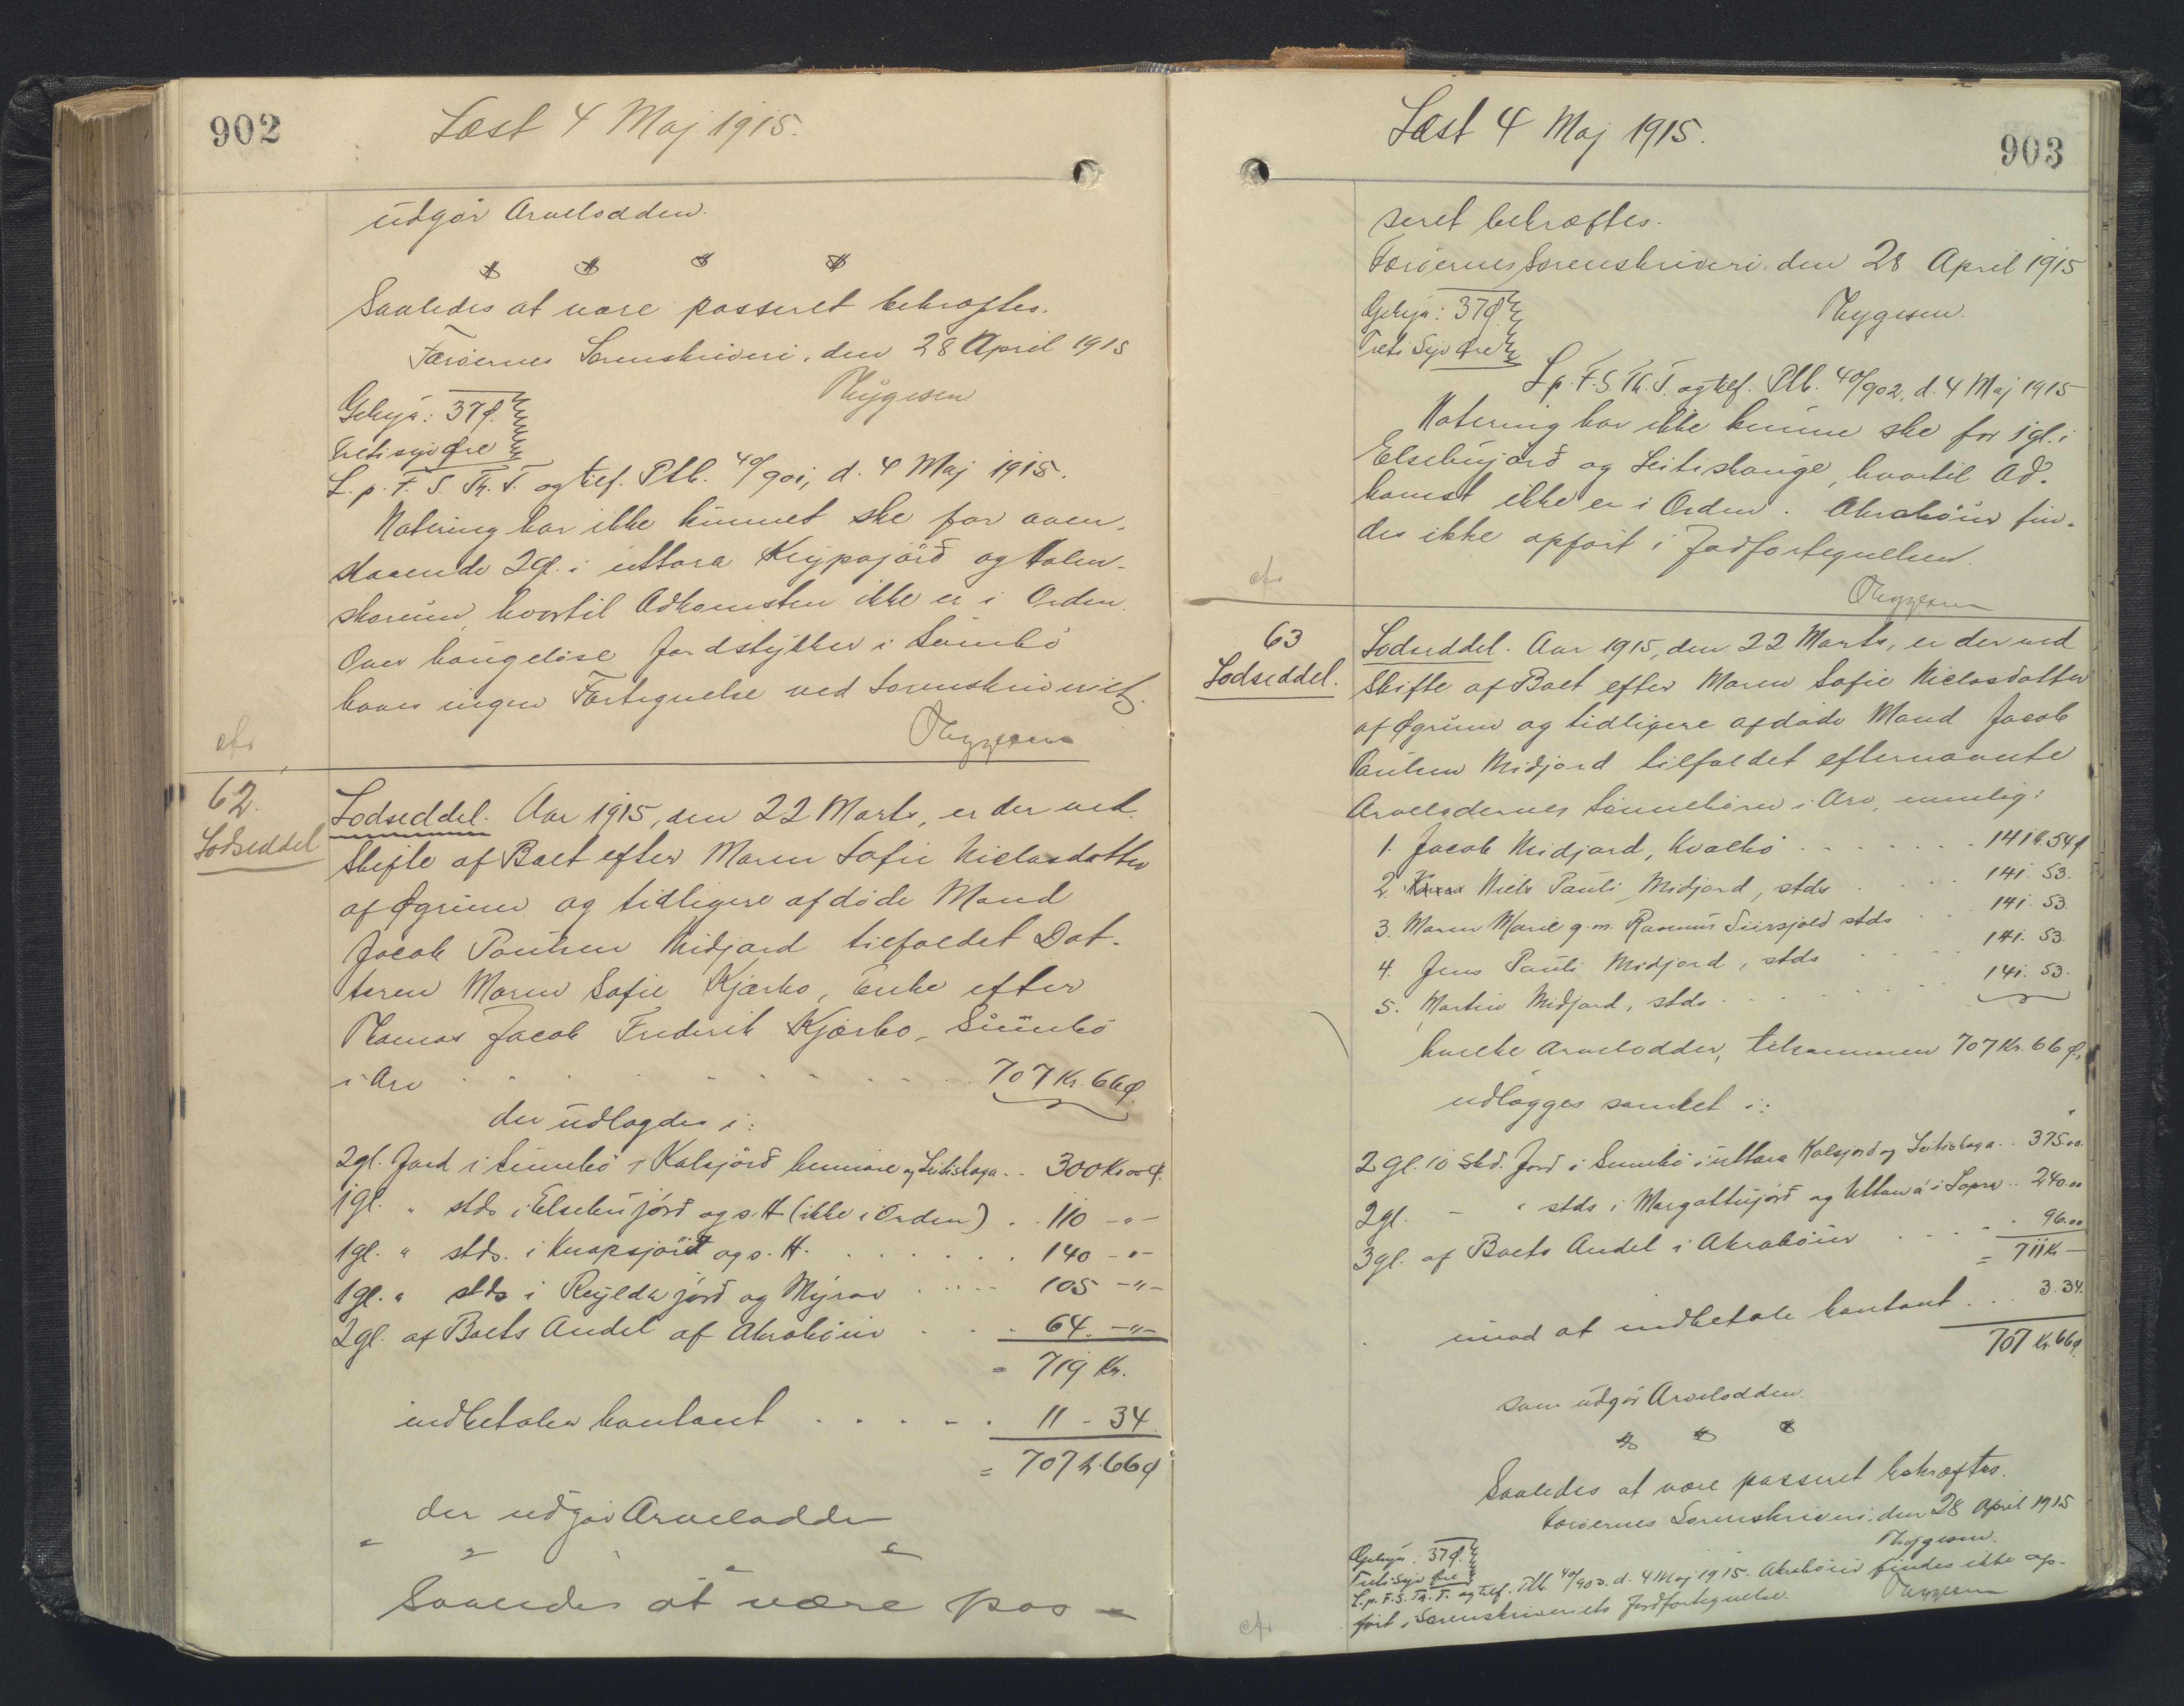 902
Læst 4 Maj 1915.
udgør Arvelodden.
Saaledes at være passeret bekræftes.
Færøernes Sorenskriveri, den 28 April 1915
Thygesen
Gebyr: 37 Ø.
Tretisyv Øre
L. p. F. S. Th. T. og tilf. Ptb. 40/901, d. 4 Maj 1915.
Notering har ikke kunnet ske for oven-
staaende 2 gl. i uttara Krypajörð og
hvortil Adkomsten ikke er i Orden.
Over haugeløse Jordstykker i Sumbø
haves ingen Fortegnelse ved Sorenskriveriet.
Thygesen
cfr
62.
Lodseddel
Lodseddel. Aar 1915, den 22 Marts, er der ved
Skifte af Boet efter Maren Sofie Niclasdatter
af Øgrunn og tidligere afdøde Mand
Jacob Poulsen Midjord tilfaldet Dat-
teren Maren Sofie Kjærbo, Enke efter
Thomas Jacob Frederik Kjærbo, Sumbø
i Arv . . . . . . . . 707 Kr. 66 Ø.
der udlagdes i:
2 gl. Jord i Sumbø i Kalsjörð heimare og Leitishaga . . 300 Kr 00 Ø.
1 gl. " stds i Elsebujörð og s. H (ikke i Orden) . . 110 -"-
1 gl. " stds. i Knapsjörð og s. H. . . . . . 140 -"-
1 gl. " stds i Reyldujörð og Mýrar . . . . 105 -"-
2 gl. af Boets Andel af Akrabøur . . . 64. -"-
= 719 Kr.
indbetaler kontant . . . . . 11 - 34
= 707 k. 66 Ø
der udgør Arvelodden
Saaledes at være pas-
903
Læst 4 Maj 1915.
seret bekræftes.
Færøernes Sorenskriveri, den 28 April 1915
Thygesen.
Gebyr: 37 Ø.
Treti Syv Øre
L. p. F. S. Th. T. og tilf. Ptb. 40/902, d. 4 Maj 1915
Notering har ikke kunne ske for 1 gl. i
Elsebujörð og Leitishauge, hvortil Ad-
komst ikke er i Orden. Akrabøur fin-
des ikke opført i Jordfortegnelsen.
Thygesen
cfr
63
Lodseddel.
Lodseddel. Aar 1915, den 22 Marts, er der ved
Skifte af Boet efter Maren Sofie Niclasdatter
af Øgrunn og tidligere afdøde Mand Jacob
Poulsen Midjord tilfaldet efternævnte
Arveladernes Sønnebørn i Arv, nemlig:
1. Jacob Midjord, Kvalbø . . . . . . 141 K. 54 Ø
2. Niels Pauli Midjord, stds . . . . 141. 53.
3. Maren Marie g. m. Rasmus stds . . 141. 53.
4. Jens Pauli Midjord, stds . . . . 141. 53.
5. Martin Midjord, stds . . . . . . 141. 53.
hvilke Arvelodder, tilsammen 707 Kr. 66 Ø.,
udlægges samlet i:
2 gl. 10 skd. Jord i Sumbø i uttara Kalsjord og Leitishaga . . 375.00.
2 gl. - " stds i Margattujørð og Uttan á i Lopra . . 240.00
3 gl. af Boets Andel i Akrabøur . . . . 96.00
= 711 K -
imod at indbetale kontant . . . 3. 34.
707 Kr. 66 Ø.
som udgør Arvelodden.
Saaledes at være passeret bekræftes.
Færøernes Sorenskriveri, den 28 April 1915
Thygesen.
Gebyr: 37 Ø.
Treti Syv Øre
L. p. F. S. Th. T. og tilf. Ptb. 40/903. d. 4 Maj 1915. Akrabøur findes ikke op-
ført i Sorenskriveriets Jordfortegnelse.
Thygesen
cfr